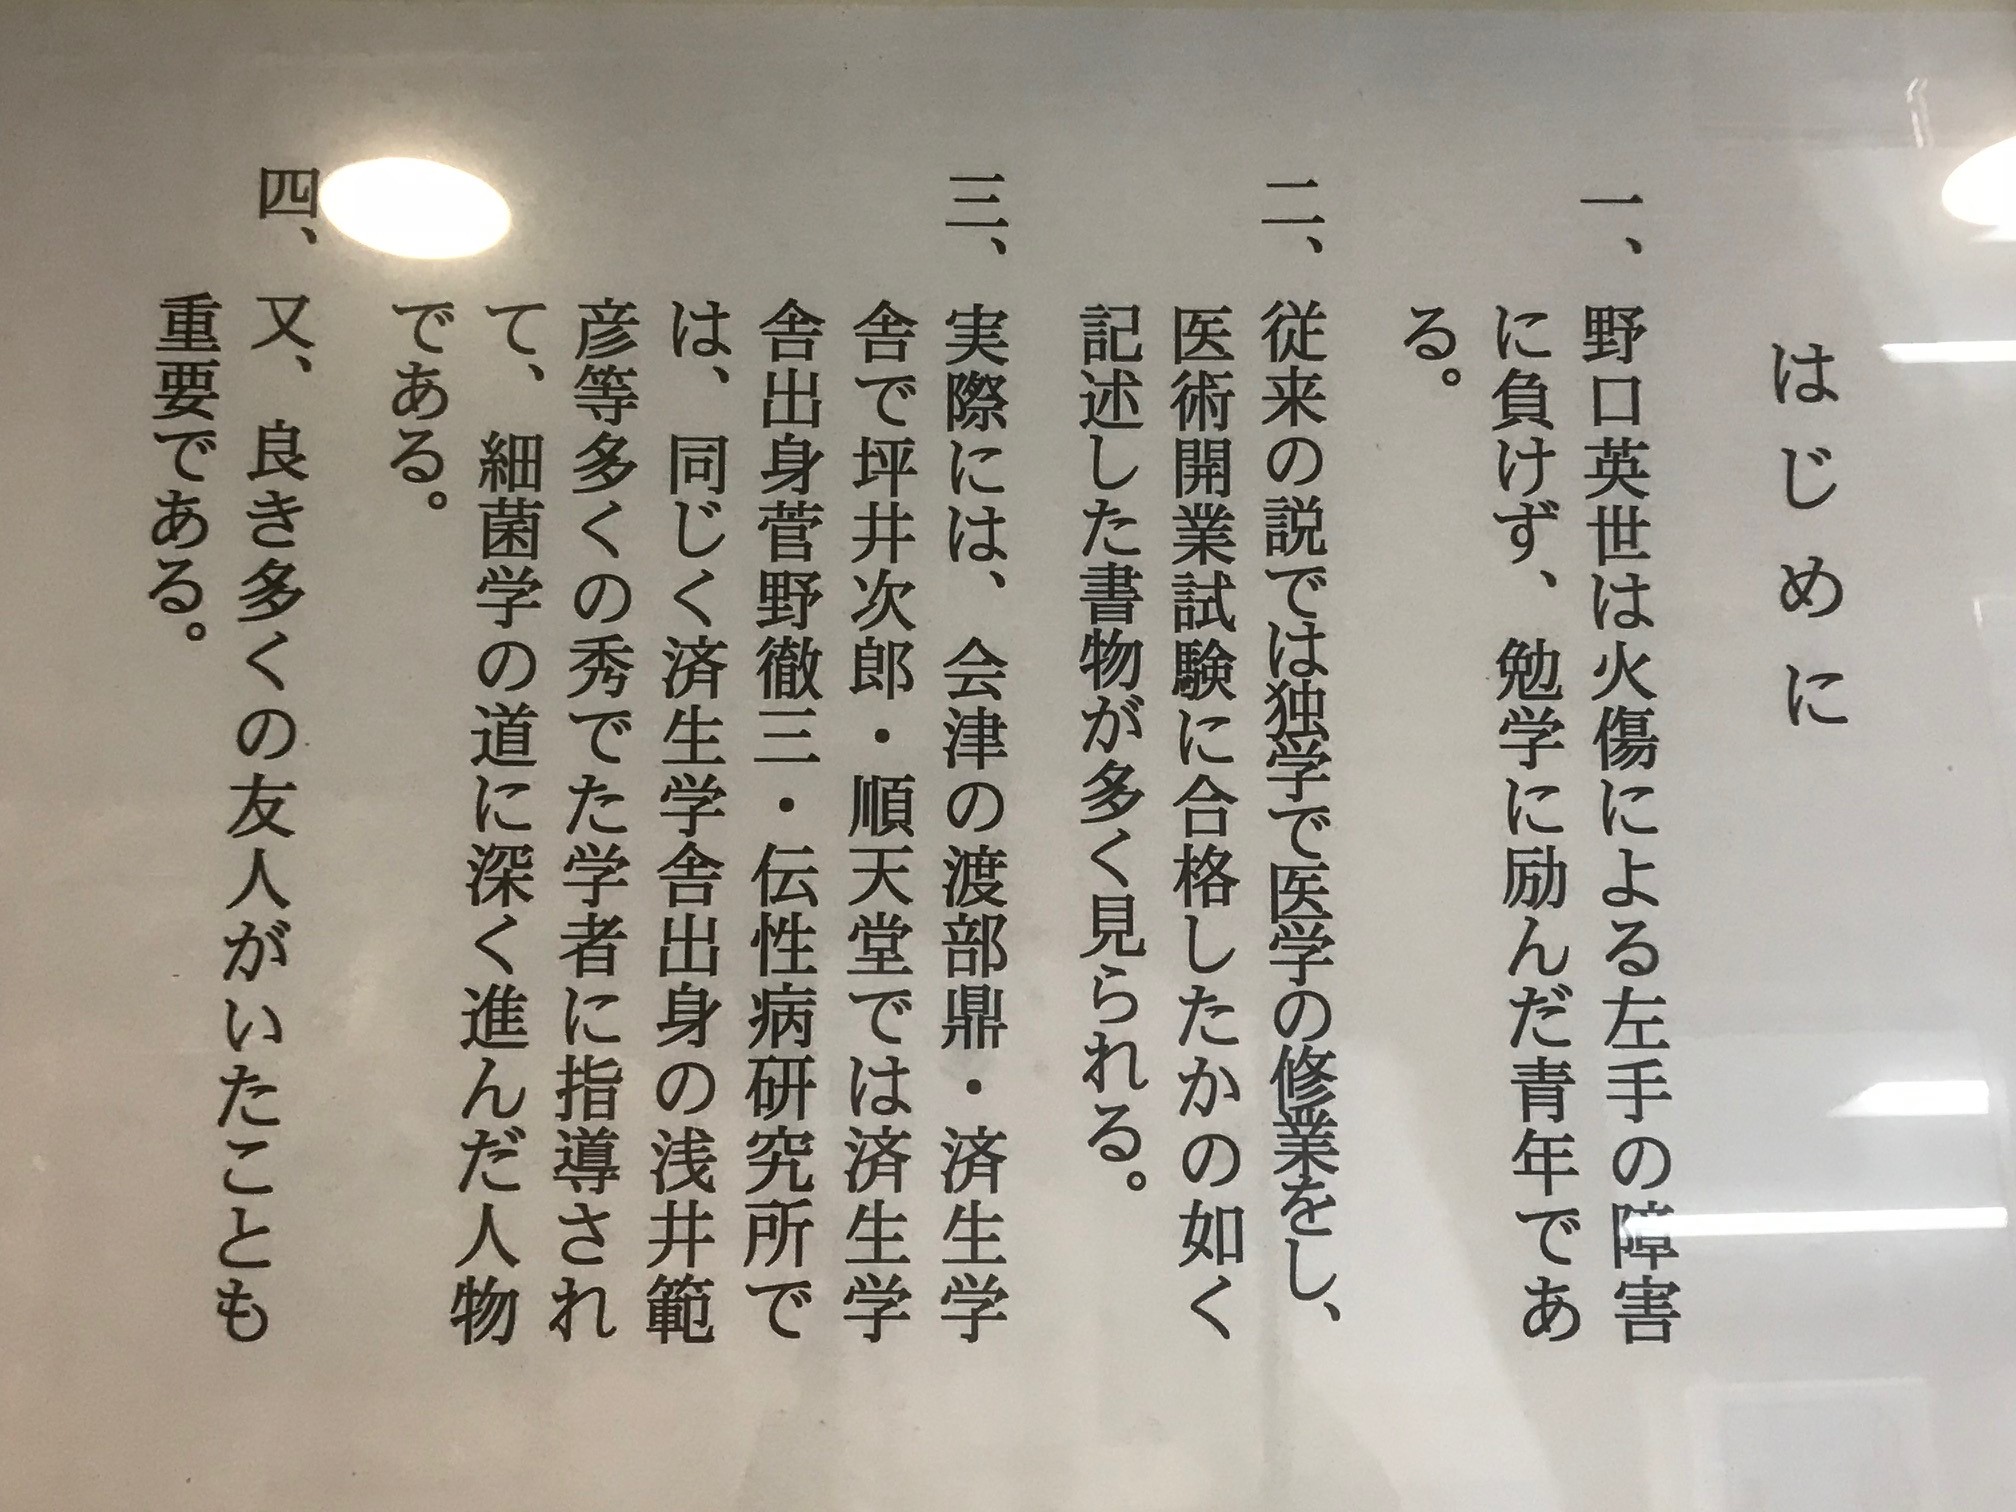 はじめに
一、野口英世は火傷による左手の障害
に負けず、勉学に励んだ青年であ
る。
二、従来の説では独学で医学の修業をし、
医術開業試験に合格したかの如く
記述した書物が多く見られる。
三、実際には、会津の渡部鼎・済生学
舎で坪井次郎・順天堂では済生学
舎出身菅野徹三・伝性病研究所で
は、同じく済生学舎出身の浅井範
彦等多くの秀でた学者に指導され
て、細菌学の道に深く進んだ人物
である。
四、又、良き多くの友人がいたことも
重要である。